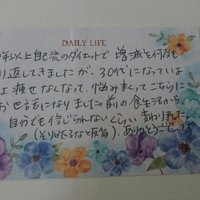 DAILY LIFE
年以上自己流のダイエットで増減を何度も
り返してきましたが、30代になってい
よ痩せなくなって、悩みまくってこちらに
お世話になりました。前の食生活から
自分でも信じられないくらい変わりました
ありがとうござい